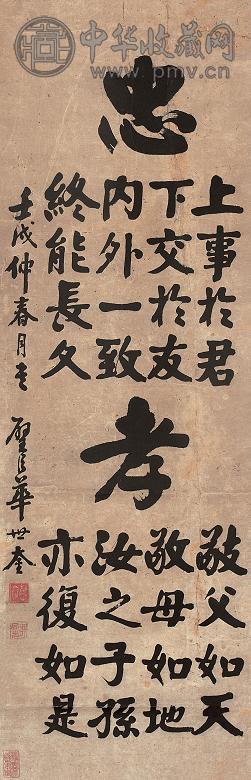 中华收藏网
www.pmv.cn
忠
上事於君
下交於友
内外一致
終能長久
孝
敬父如天
敬母如地
汝之子孫
亦復如是
壬戌仲春月
璧臣華世奎